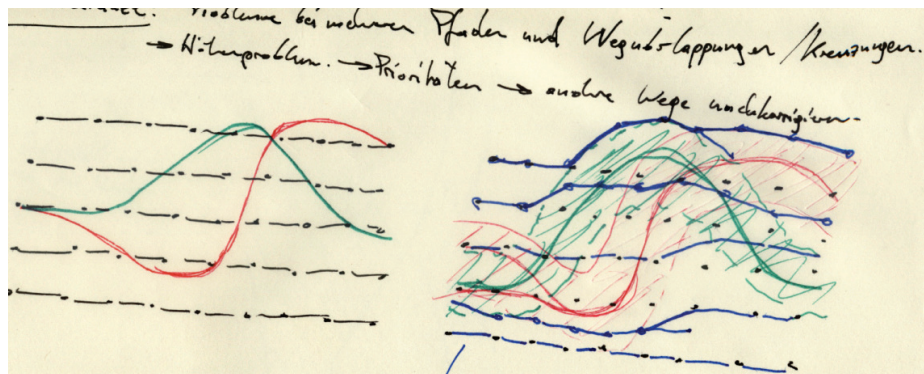 Probleme bei mehreren Pfaden und Wegüberlappungen / Kreuzungen.
→ Höhenproblem. → Prioritäten → andre Wege nachkorrigieren.